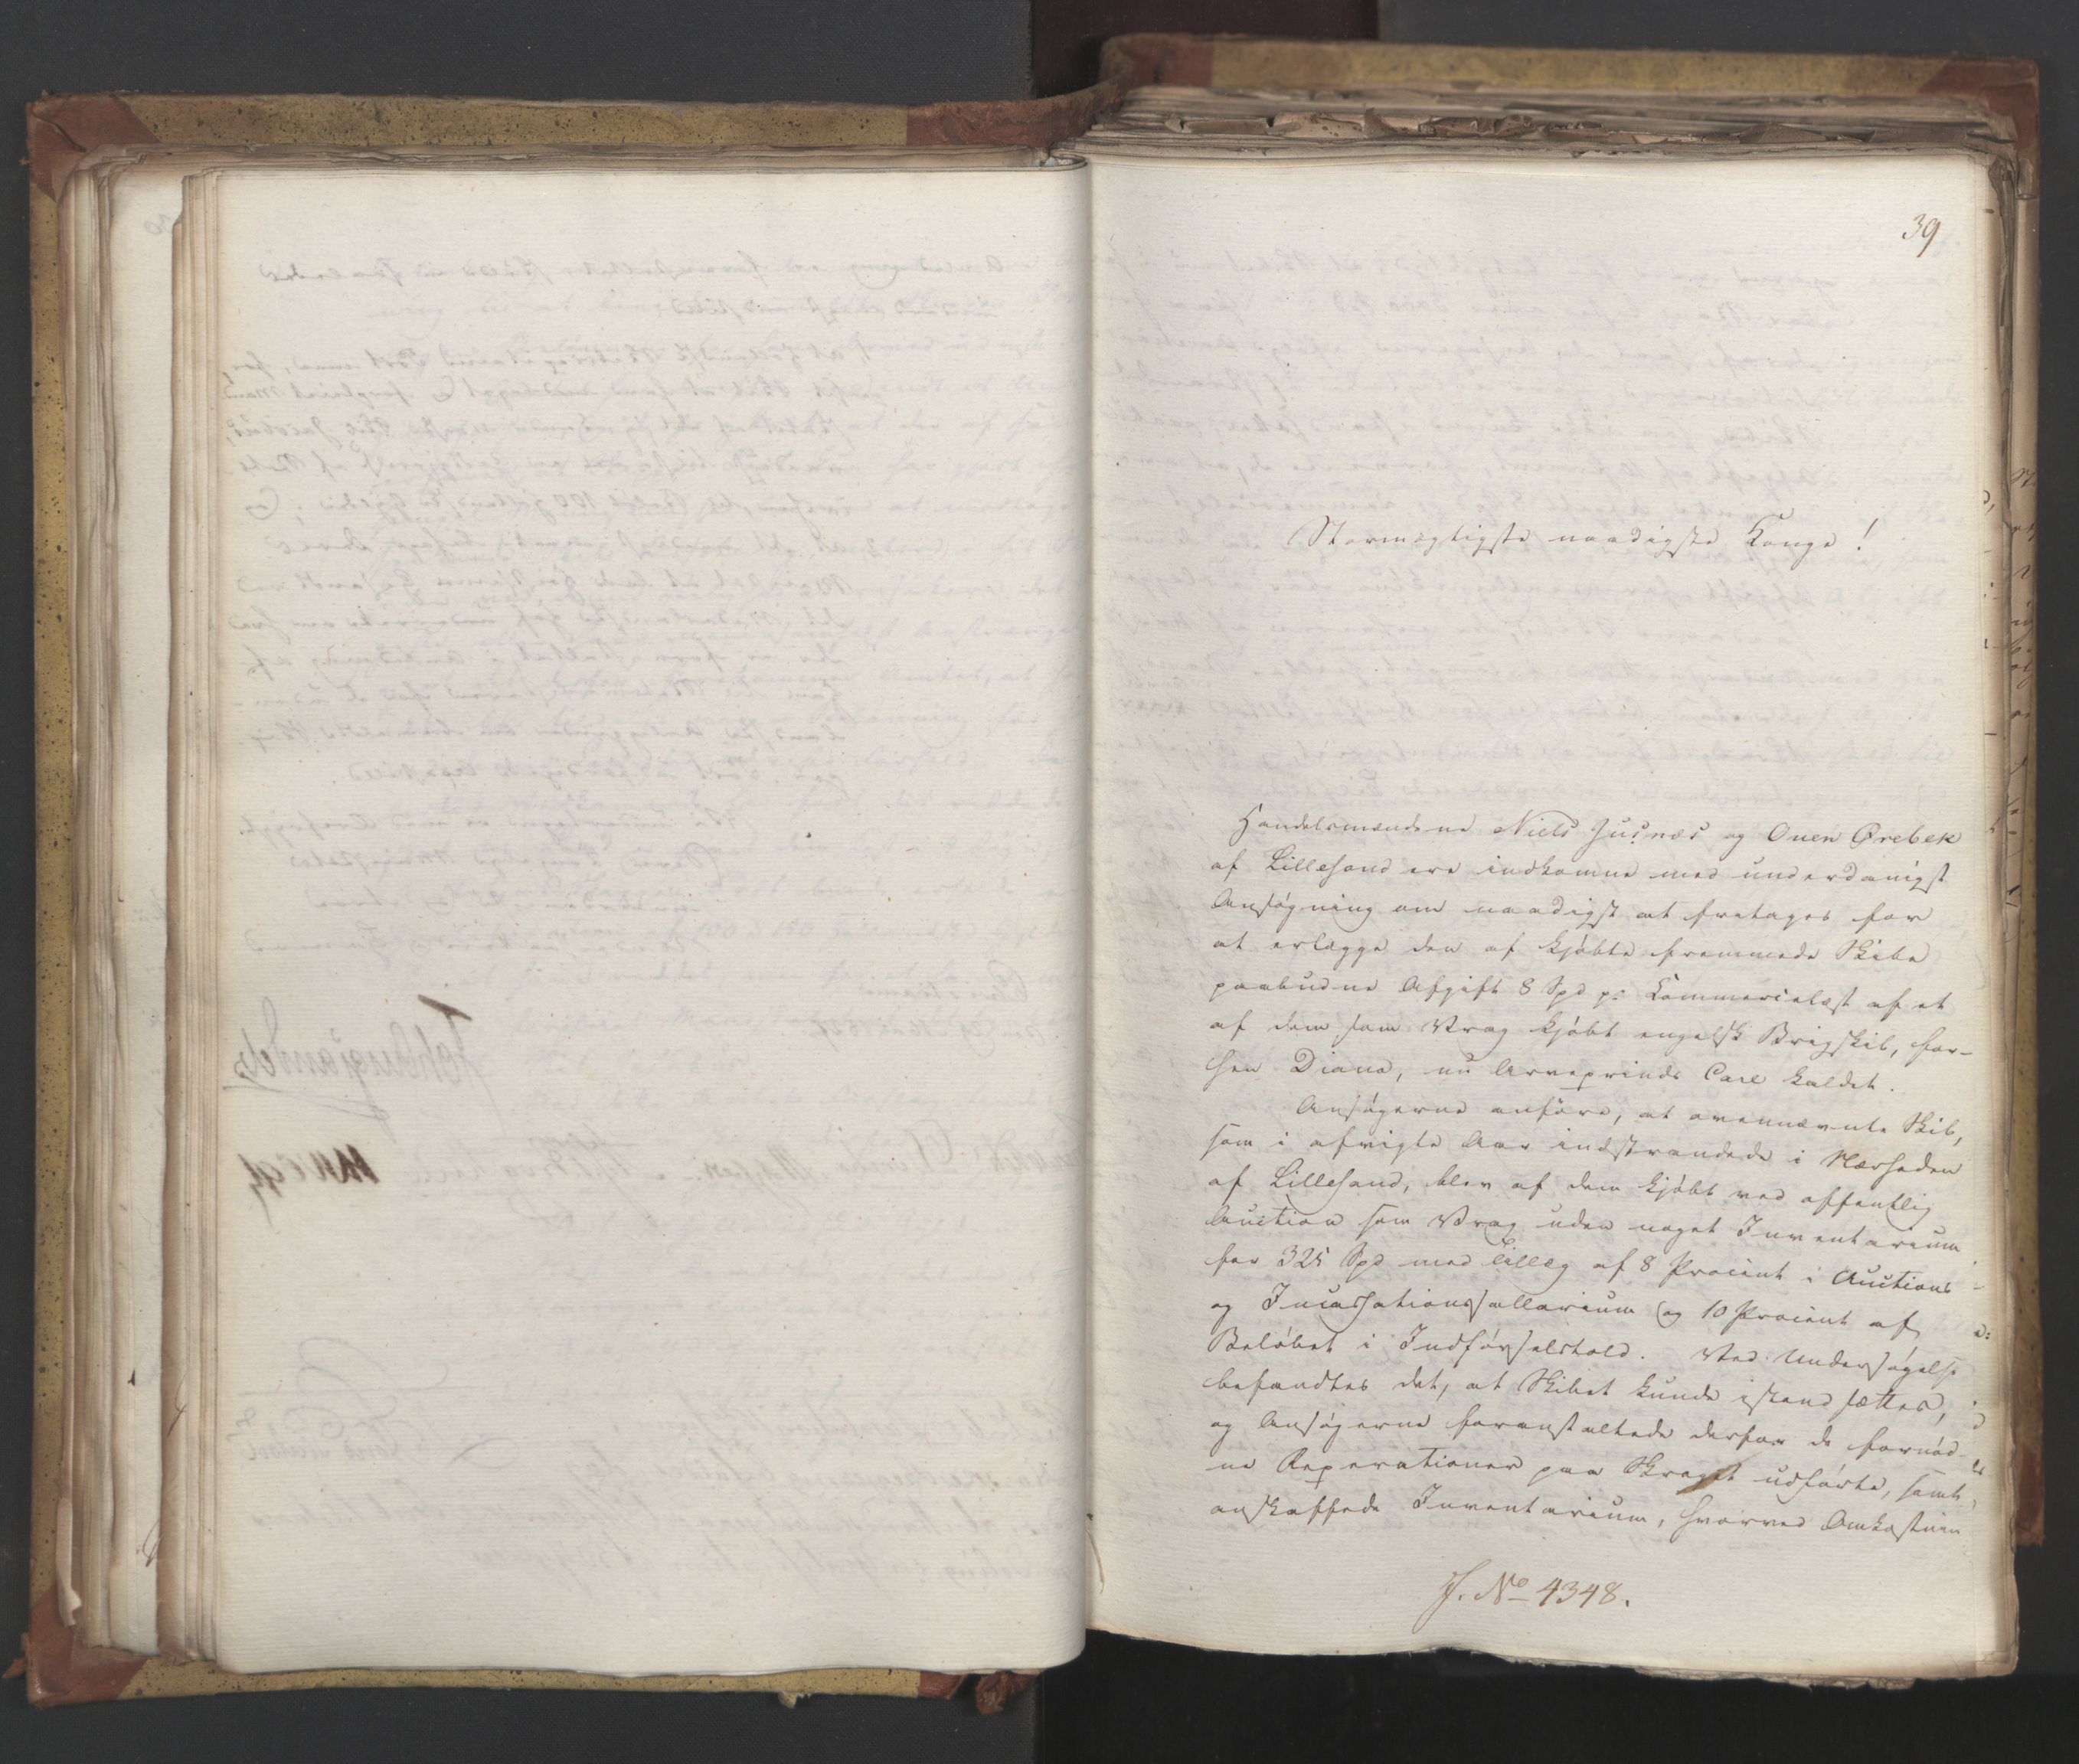 39
Stormægtigste naadigste Konge!
Handelsmændene Niels Jusnæs og Ouen Ørebek
af Lillesand ere indkomne med underdanigst
Ansøgning om naadigst at fritages for
at erlægge den af kjøbte fremmede Skibe
paabudne Afgift 8 Spd pr Commercelæst af et
af dem som Vrag kjøbt engelsk Brigskib, for-
hen Diana, nu Arveprinds Carl kaldet.
Ansøgerne anføre, at ovennævnte Skib,
som i afvigte Aar indstrandede i Nærheden
af Lillesand, blev af dem kjøbt ved offentlig
Auction som Vrag uden noget Inventarium
for 325 Spd med Tillæg af 8 Procent i Auctions-
og Incassationssallarium og 10 Procent af
Beløbet i Indførselstold. Ved Undersøgelse
befandtes det, at Skibet kunde istandsættes,
og Ansøgerne foranstaltede derfor de fornød-
ne Reparationer paa Skroget udførte, samt
anskaffede Inventarium, hvorved Omkostnin
J. No 4348.